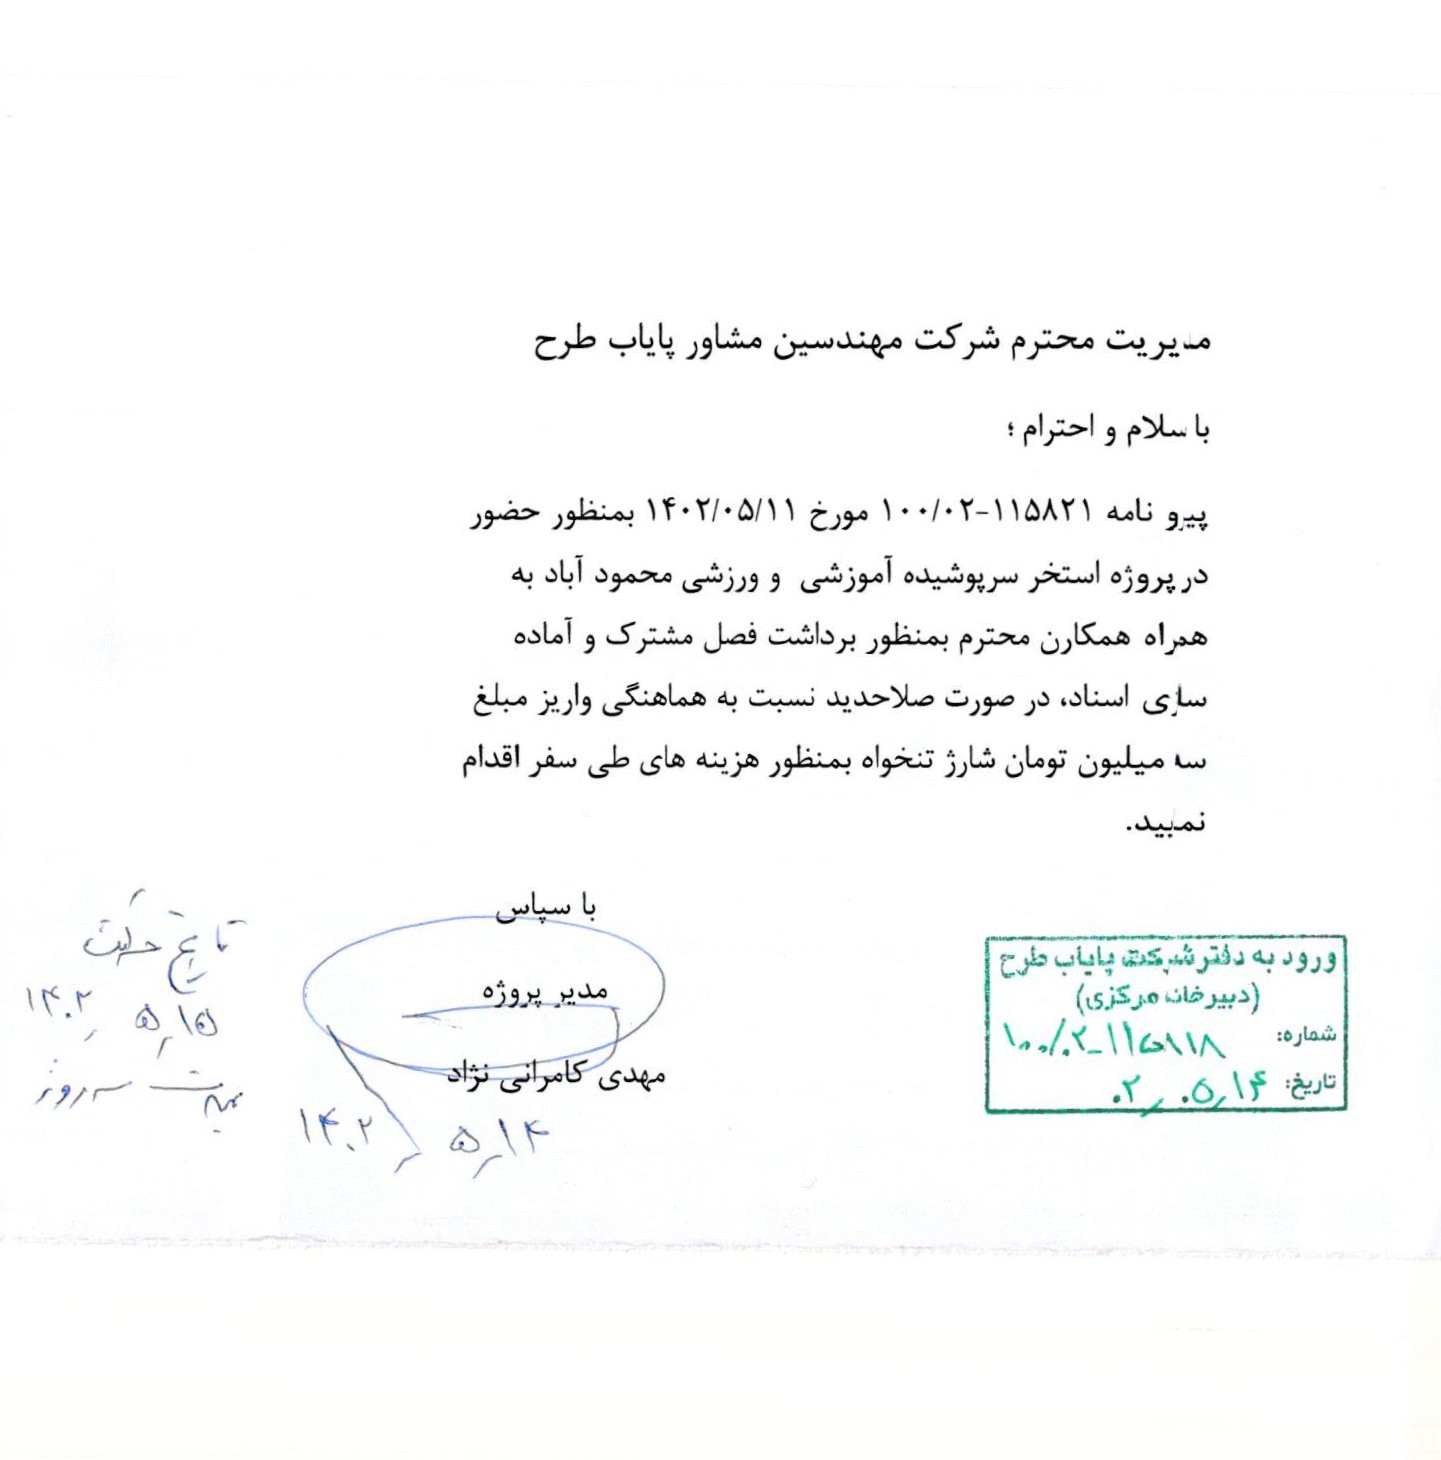 مدیریت محترم شرکت مهندسین مشاور پایاب طرح
با سلام و احترام ؛
پیرو نامه ۱۱۵۸۲۱-۱۰۰/۰۲ مورخ ۱۴۰۲/۰۵/۱۱ بمنظور حضور
در پروژه استخر سرپوشیده آموزشی و ورزشی محمود آباد به
همراه همکارن محترم بمنظور برداشت فصل مشترک و آماده
سازی اسناد، در صورت صلاحدید نسبت به هماهنگی واریز مبلغ
سه میلیون تومان شارژ تنخواه بمنظور هزینه های طی سفر اقدام
نمایید.
با سپاس
مدیر پروژه
مهدی کامرانی نژاد
۱۴۰۲/۵/۱۴
تاریخ حرکت
۱۴۰۲/۵/۱۵
بمدت سه روز
ورود به دفتر شرکت پایاب طرح
(دبیرخانه مرکزی)
شماره: ۱۰۰/۰۲-۱۱۵۸۱۸
تاریخ: ۰۲/۰۵/۱۴